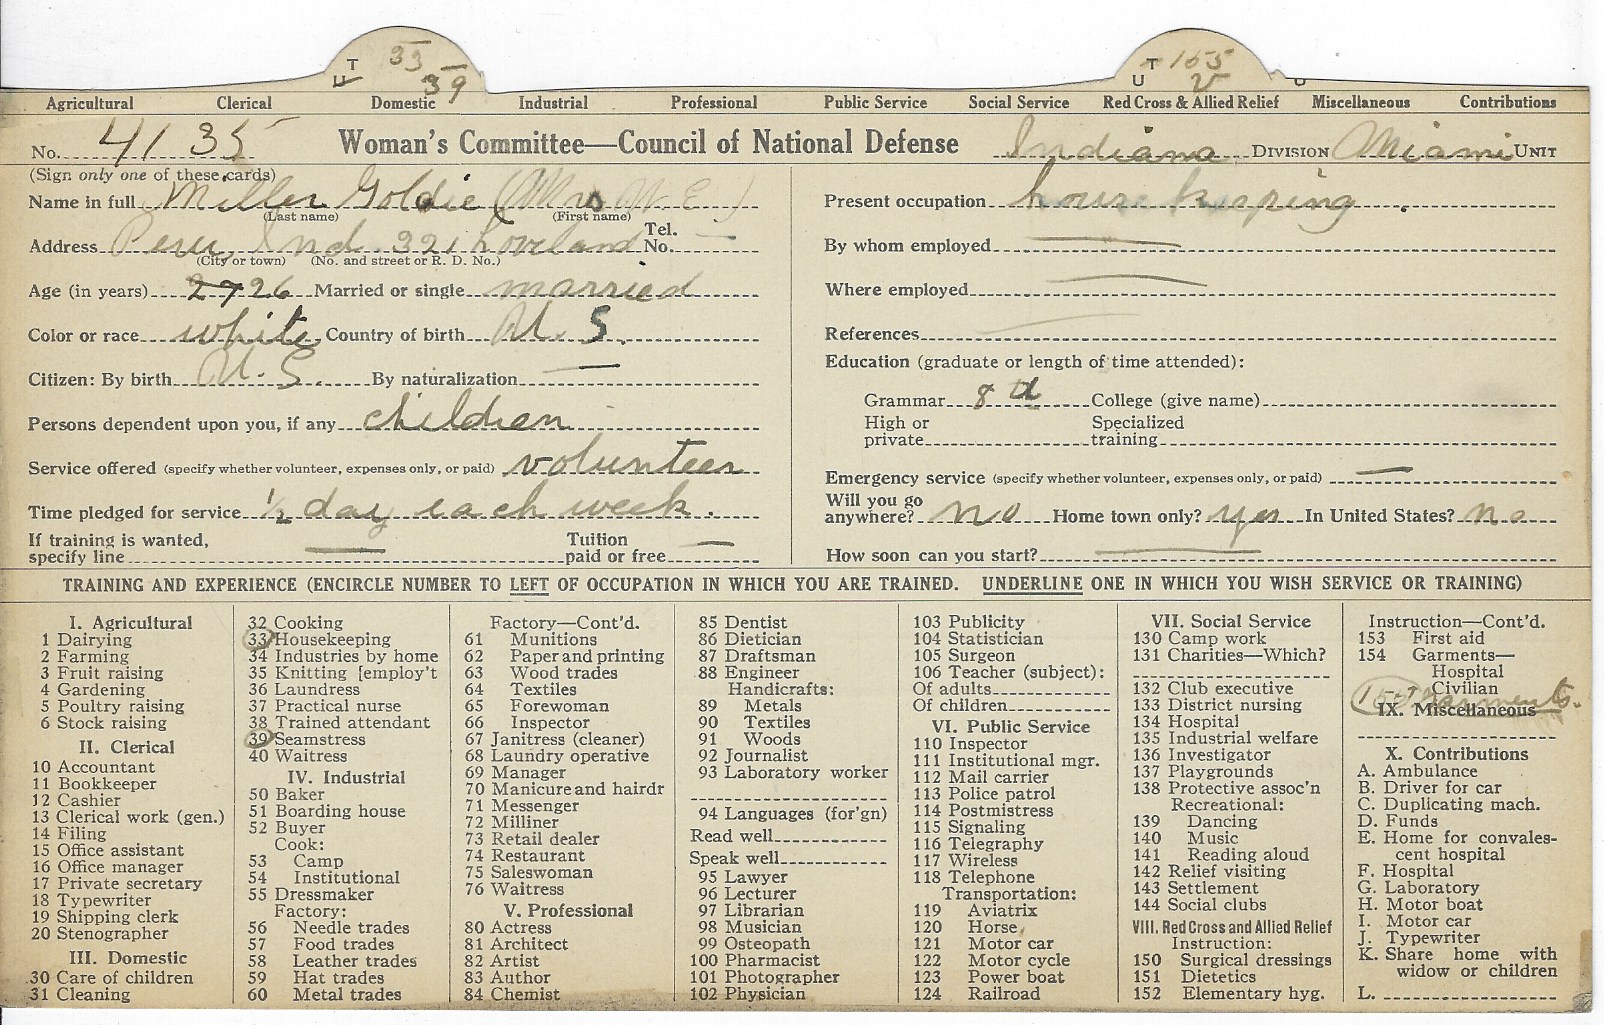 T 33
U 39
T 155
U v
Agricultural Clerical Domestic Industrial Professional Public Service Social Service Red Cross & Allied Relief Miscellaneous Contributions
No. 4135 Woman's Committee—Council of National Defense Indiana DIVISION Miami UNIT
(Sign only one of these cards)
Name in full Miller Goldie (Mrs W. E.)
(Last name) (First name)
Address Peru, Ind. 321 Loveland Tel. No. —
(City or town) (No. and street or R. D. No.)
Age (in years) 27 26 Married or single married
Color or race white Country of birth U. S.
Citizen: By birth U. S. By naturalization —
Persons dependent upon you, if any children
Service offered (specify whether volunteer, expenses only, or paid) volunteer
Time pledged for service ½ day each week.
If training is wanted, specify line — Tuition paid or free —
Present occupation house keeping.
By whom employed —
Where employed —
References —
Education (graduate or length of time attended):
Grammar 8th College (give name)
High or private Specialized training
Emergency service (specify whether volunteer, expenses only, or paid) —
Will you go anywhere? no Home town only? yes In United States? no
How soon can you start? —
TRAINING AND EXPERIENCE (ENCIRCLE NUMBER TO LEFT OF OCCUPATION IN WHICH YOU ARE TRAINED. UNDERLINE ONE IN WHICH YOU WISH SERVICE OR TRAINING)
I. Agricultural
1 Dairying
2 Farming
3 Fruit raising
4 Gardening
5 Poultry raising
6 Stock raising
II. Clerical
10 Accountant
11 Bookkeeper
12 Cashier
13 Clerical work (gen.)
14 Filing
15 Office assistant
16 Office manager
17 Private secretary
18 Typewriter
19 Shipping clerk
20 Stenographer
III. Domestic
30 Care of children
31 Cleaning
32 Cooking
33 Housekeeping
34 Industries by home
35 Knitting [employ't
36 Laundress
37 Practical nurse
38 Trained attendant
39 Seamstress
40 Waitress
IV. Industrial
50 Baker
51 Boarding house
52 Buyer
Cook:
53 Camp
54 Institutional
55 Dressmaker
Factory:
56 Needle trades
57 Food trades
58 Leather trades
59 Hat trades
60 Metal trades
Factory—Cont'd.
61 Munitions
62 Paper and printing
63 Wood trades
64 Textiles
65 Forewoman
66 Inspector
67 Janitress (cleaner)
68 Laundry operative
69 Manager
70 Manicure and hairdr
71 Messenger
72 Milliner
73 Retail dealer
74 Restaurant
75 Saleswoman
76 Waitress
V. Professional
80 Actress
81 Architect
82 Artist
83 Author
84 Chemist
85 Dentist
86 Dietician
87 Draftsman
88 Engineer
Handicrafts:
89 Metals
90 Textiles
91 Woods
92 Journalist
93 Laboratory worker
94 Languages (for'gn)
Read well
Speak well
95 Lawyer
96 Lecturer
97 Librarian
98 Musician
99 Osteopath
100 Pharmacist
101 Photographer
102 Physician
103 Publicity
104 Statistician
105 Surgeon
106 Teacher (subject):
Of adults
Of children
VI. Public Service
110 Inspector
111 Institutional mgr.
112 Mail carrier
113 Police patrol
114 Postmistress
115 Signaling
116 Telegraphy
117 Wireless
118 Telephone
Transportation:
119 Aviatrix
120 Horse
121 Motor car
122 Motor cycle
123 Power boat
124 Railroad
VII. Social Service
130 Camp work
131 Charities—Which?
132 Club executive
133 District nursing
134 Hospital
135 Industrial welfare
136 Investigator
137 Playgrounds
138 Protective assoc'n
Recreational:
139 Dancing
140 Music
141 Reading aloud
142 Relief visiting
143 Settlement
144 Social clubs
VIII. Red Cross and Allied Relief
Instruction:
150 Surgical dressings
151 Dietetics
152 Elementary hyg.
Instruction—Cont'd.
153 First aid
154 Garments—
Hospital
Civilian
garments.
IX. Miscellaneous
X. Contributions
A. Ambulance
B. Driver for car
C. Duplicating mach.
D. Funds
E. Home for convales-
cent hospital
F. Hospital
G. Laboratory
H. Motor boat
I. Motor car
J. Typewriter
K. Share home with
widow or children
L.